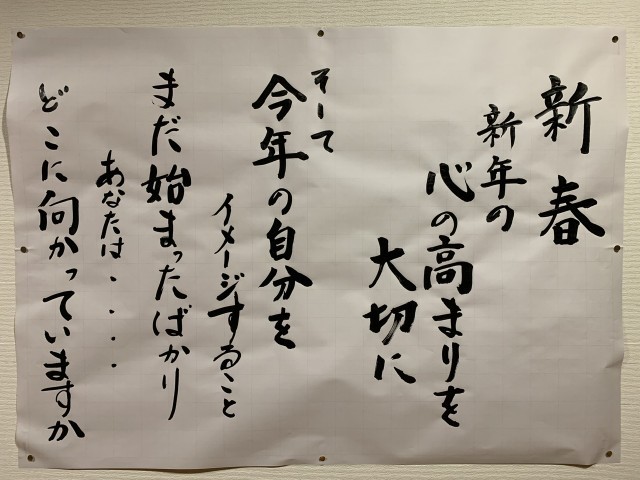 新春
新年の
心の高まりを
大切に
そして
今年の自分を
イメージすること
まだ始まったばかり
あなたは・・・・
どこに向かっていますか